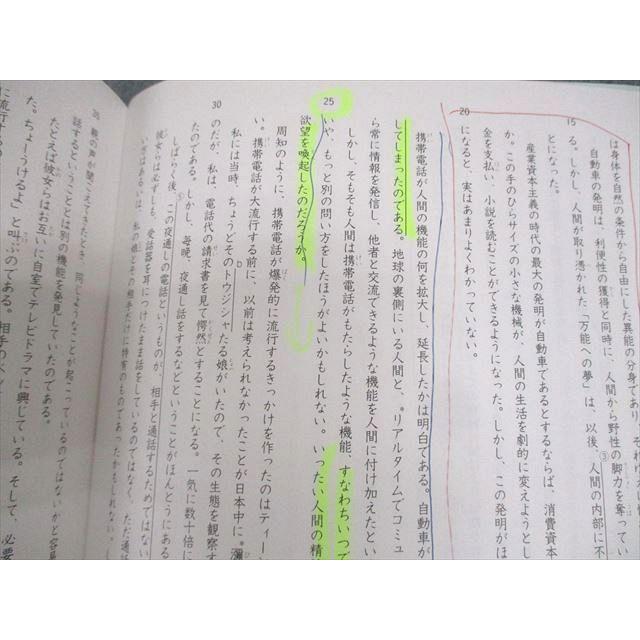 は身体を自然の条件から自由にした異能の分身であり、
自動車の発明は、利便性の獲得と同時に、人間から野性の脚力を奪って
15
る。しかし、人間が取り憑かれた「万能への夢」は、以後、③人間の内部に不
とになった。
産業資本主義の時代の最大の発明が自動車であるとするならば、消費資本
か。この手のひらサイズの小さな機械が、人間の生活を劇的に変えようとし
金を支払い、小説を読むことができるようになった。しかし、この発明がほ
20
になると、実はあまりよくわかっていない。
携帯電話が人間の機能の何を拡大し、延長したかは明白である。自動車が
してしまったのである。地球の裏側にいる人間と、*リアルタイムでコミュ
ら常に情報を発信し、他者と交流できるような機能を人間に付け加えたとい
しかし、そもそも人間は携帯電話がもたらしたような機能、すなわちいつで
25
いや、もっと別の問い方をしたほうがよいかもしれない。いったい人間の精
欲望を喚起したのだろうか。
周知のように、携帯電話が爆発的に流行するきっかけを作ったのはティー
い。携帯電話が大流行する前に、以前は考えられなかったことが日本中に*瀰
私には当時、ちょうどそのbトウジシャたる娘がいたので、その生態を観察す
30
のだが、私は、電話代の請求書を見て愕然とすることになる。一気に数十倍に
たのである。しかし、毎晩、夜通し話をするなどということがほんとうにある
しばらく後、この夜通しの電話というものが、相手と通話するためではない
彼女らは必ずしも、受話器を耳につけたまま話をしているのではなく、ただ通話
私の娘とその相手だけに特有のものであったかもしれない。しかし
35
親の声が聞こえてきたとき、同じようなことが起こっているのではないかと容易
話するということとは別の機能を発見していたのである。
たとえば彼女らはお互いに自室でテレビドラマに興じている。そして、必要
た。ちょーうけるよ」と叫ぶのである。相手の
に流行する